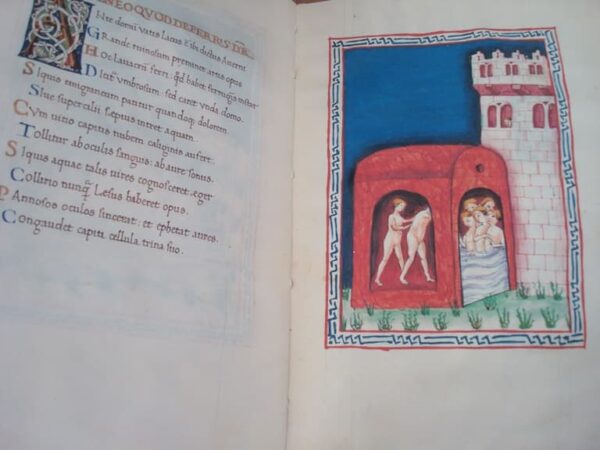 NEO QVOD DE FERRIS DR
Ante domū vatis Lacus ē ibi dictus Averni
Grande ruinosum preminet artis opus
Hoc Lavacrū ferri. qd habet ferruginis instar
umbrosum. sed caret unda domo.
Siquis emigraneum patitur quandoq; dolorem.
Sive supercilii Lepsus intret aquam.
Cum vitio capitis nubem caliginis aufert.
Tollitur ab oculis sanguis. ab aure sonus.
Siquis aquae talis vires cognosceret, eger
Collirio nunq̄ Lesus haberet opus.
Pannosos oculos sincerat. et aures.
Congaudet capiti cellula trina suo.